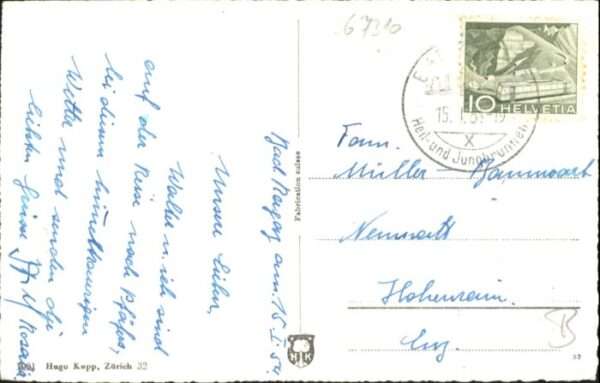 67310
10 HELVETIA
15. I. 54-19
Heil- und Jungbrunnen
Bad Ragaz am. 15. I. 54.
Unsere Lieben,
Walter u. ich sind
auf der Reise nach Pfäfers,
bei diesem
Wetter und senden die
liebsten Grüsse
Fam.
Müller-Bannwart
Neumatt
Hohenrain
Luz.
Fabrication suisse
Hugo Kopp, Zürich 32
B